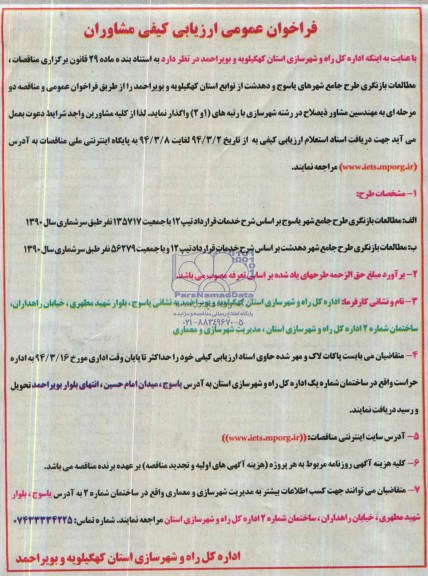 فراخوان عمومی ارزیابی کیفی مشاوران
با عنایت به اینکه اداره کل راه و شهرسازی استان کهکیلویه و بویراحمد در نظر دارد به استناد بند ه ماده ۲۹ قانون برگزاری مناقصات ،
مطالعات بازنگری طرح جامع شهرهای یاسوج و دهدشت از توابع استان کهکیلویه و بویراحمد را از طریق فراخوان عمومی و مناقصه دو
مرحله ای به مهندسین مشاور ذیصلاح در رشته شهرسازی با رتبه های (۱و ۲) واگذار نماید. لذا از کلیه مشاورین واجد شرایط دعوت بعمل
می آید جهت دریافت اسناد استعلام ارزیابی کیفی به از تاریخ ۹۴/۳/۲ لغایت ۹۴/۳/۸ به پایگاه اینترنتی ملی مناقصات به آدرس
(www.iets.mporg.ir) مراجعه نمایند.
۱- مشخصات طرح:
الف: مطالعات بازنگری طرح جامع شهر یاسوج بر اساس شرح خدمات قرارداد تیپ ۱۲ با جمعیت ۱۳۵۷۱۷ نفر طبق سرشماری سال ۱۳۹۰
ب: مطالعات بازنگری طرح جامع شهر دهدشت بر اساس شرح خدمات قرارداد تیپ ۱۲ و با جمعیت ۵۶۲۷۹ نفر طبق سرشماری سال ۱۳۹۰
۲- برآورد مبلغ حق الزحمه طرحهای یاد شده بر اساس تعرفه مصوب می باشد.
ParsNamadData
پایگاه اطلاع رسانی مناقصه و مزایده
۰۲۱-۸۸۳۴۹۶۷۰-۵
۳- نام و نشانی کارفرما: اداره کل راه و شهرسازی استان کهکیلویه و بویراحمد به نشانی یاسوج ، بلوار شهید مطهری ، خیابان راهداران،
ساختمان شماره ۲ اداره کل راه و شهرسازی استان ، مدیریت شهرسازی و معماری
۴- متقاضیان می بایست پاکات لاک و مهر شده حاوی اسناد ارزیابی کیفی خود را حداکثر تا پایان وقت اداری مورخ ۹۴/۳/۱۶ به اداره
حراست واقع در ساختمان شماره یک اداره کل راه و شهرسازی استان به آدرس یاسوج ، میدان امام حسین ، انتهای بلوار بویراحمد تحویل
و رسید دریافت نمایند.
۵- آدرس سایت اینترنتی مناقصات: ((www.iets.mporg.ir))
۶- کلیه هزینه آگهی روزنامه مربوط به هر پروژه (هزینه آگهی های اولیه و تجدید مناقصه) بر عهده برنده مناقصه می باشد.
۷- متقاضیان می توانند جهت کسب اطلاعات بیشتر به مدیریت شهرسازی و معماری واقع در ساختمان شماره ۲ به آدرس یاسوج ، بلوار
شهید مطهری ، خیابان راهداران ، ساختمان شماره ۲ اداره کل راه و شهرسازی استان مراجعه نمایند. شماره تماس: ۰۷۴۳۳۳۳۴۲۲۵
اداره کل راه و شهرسازی استان کهکیلویه و بویراحمد